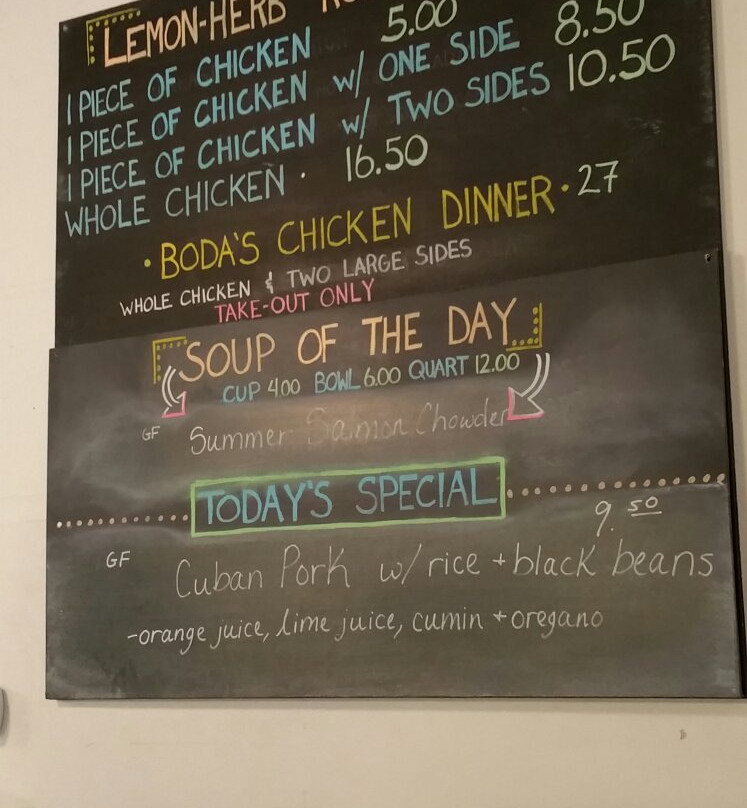 LEMON-HERB
1 PIECE OF CHICKEN 5.00
1 PIECE OF CHICKEN w/ ONE SIDE 8.50
1 PIECE OF CHICKEN w/ TWO SIDES 10.50
WHOLE CHICKEN · 16.50
· BODA'S CHICKEN DINNER · 27
WHOLE CHICKEN & TWO LARGE SIDES
TAKE-OUT ONLY
SOUP OF THE DAY
CUP 4.00 BOWL 6.00 QUART 12.00
GF Summer Salmon Chowder
TODAY'S SPECIAL
9.50
GF Cuban Pork w/ rice + black beans
-orange juice, lime juice, cumin + oregano